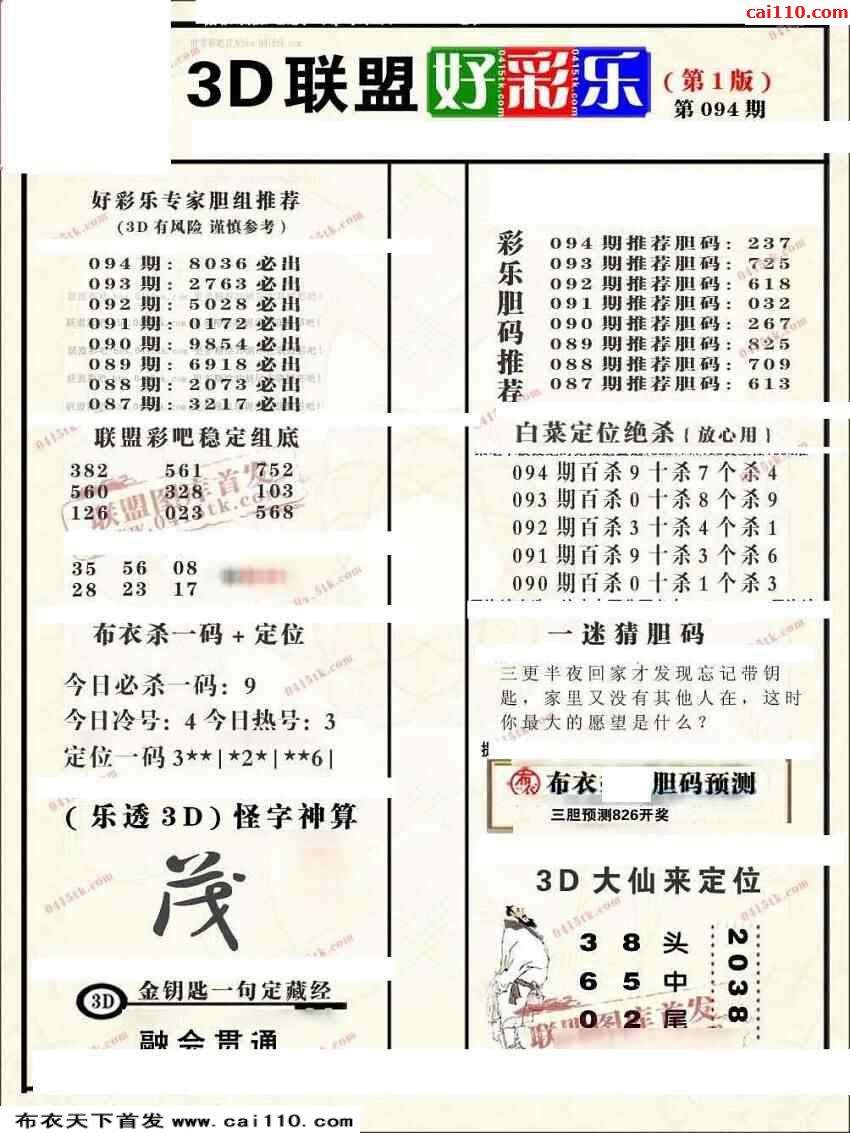 cai110.com
3D联盟好彩乐
(第1版)
第094期
好彩乐专家胆组推荐
(3D有风险 谨慎参考)
094期: 8036必出
093期: 2763必出
092期: 5028必出
091期: 0172必出
090期: 9854必出
089期: 6918必出
088期: 2073必出
087期: 3217必出
联盟彩吧稳定组底
382 561 752
560 328 103
126 023 568
35 56 08
28 23 17
布衣杀一码+定位
今日必杀一码: 9
今日冷号: 4 今日热号: 3
定位一码 3**|*2*|**6|
(乐透3D)怪字神算
茂
3D 金钥匙一句定藏经
融会贯通
彩乐胆码推荐
094期推荐胆码: 237
093期推荐胆码: 725
092期推荐胆码: 618
091期推荐胆码: 032
090期推荐胆码: 267
089期推荐胆码: 825
088期推荐胆码: 709
087期推荐胆码: 613
白菜定位绝杀{放心用}
094期百杀9十杀7个杀4
093期百杀0十杀8个杀9
092期百杀3十杀4个杀1
091期百杀9十杀3个杀6
090期百杀0十杀1个杀3
一迷猜胆码
三更半夜回家才发现忘记带钥
匙，家里又没有其他人在，这时
你最大的愿望是什么？
布衣 胆码预测
三胆预测826开奖
3D大仙来定位
3 8 头
6 5 中
0 2 尾
2038
联盟图库首发
www.0415tk.com
0415tk.com
布衣天下首发 www.cai110.com